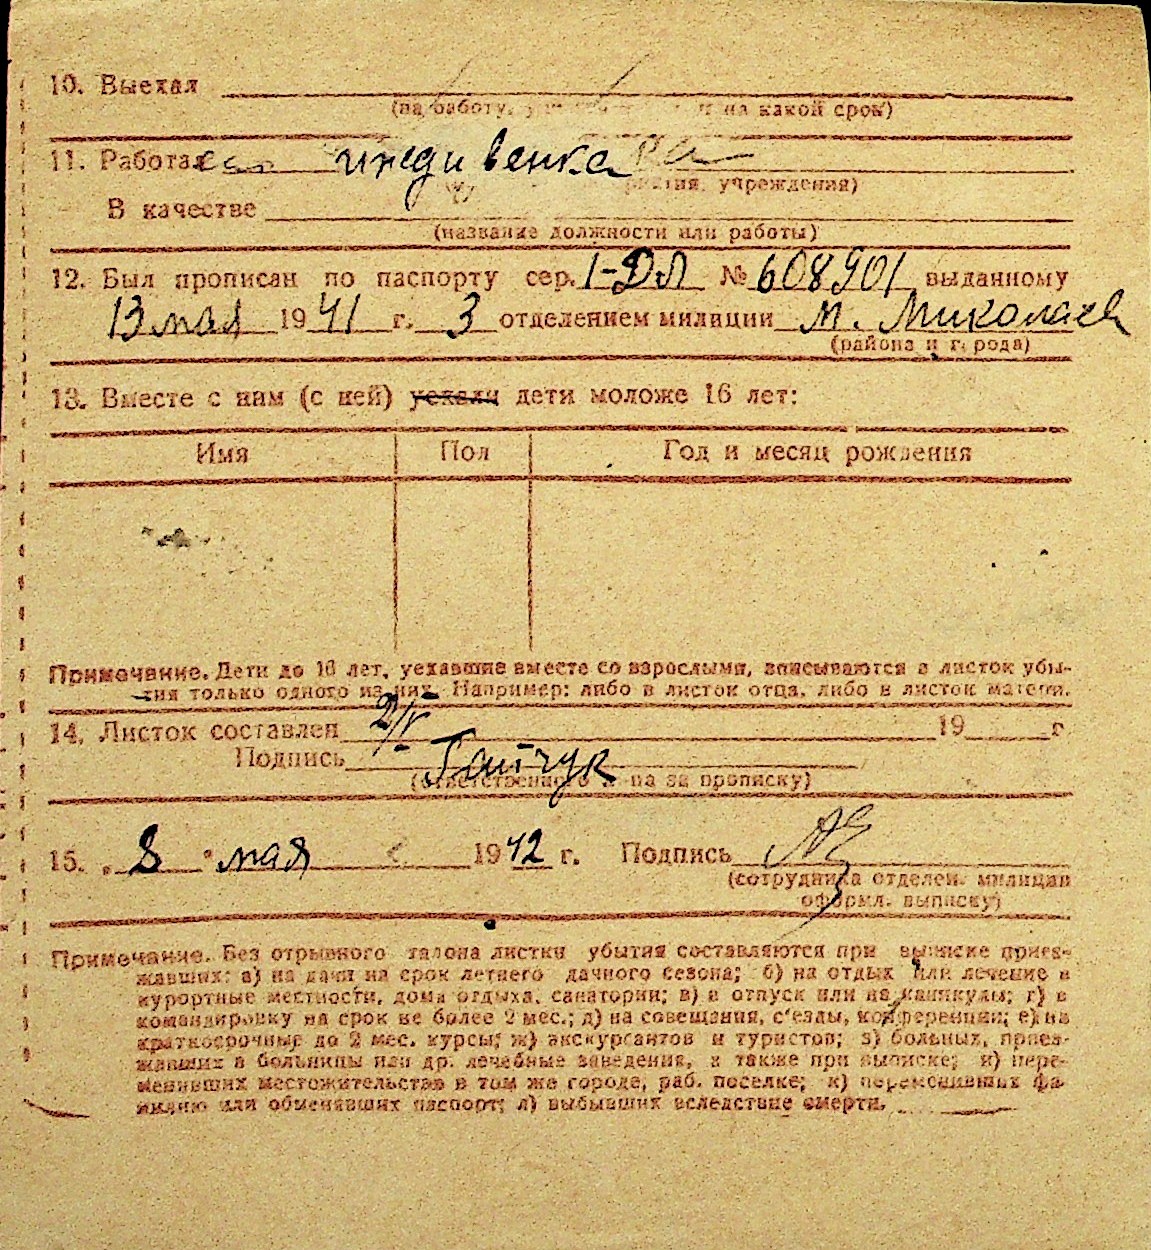 10. Выехал
(на работу, и на какой срок)
11. Работал иждивенка
учреждения)
В качестве
(название должности или работы)
12. Был прописан по паспорту сер. I-ДЛ № 608901 выданному
13 мая 1941 г. 3 отделением милиции м. Миколаев
(района и города)
13. Вместе с ним (с ней) уехали дети моложе 16 лет:
Имя Пол Год и месяц рождения
Примечание. Дети до 16 лет, уехавшие вместе со взрослыми, вписываются в листок убы-
тия только одного из них. Например: либо в листок отца, либо в листок матери.
14. Листок составлен 2/V 19 г
Подпись
(ответственного за прописку)
15. „8" мая 1942 г. Подпись
(сотрудника отделен. милиции
оформл. выписку)
Примечание. Без отрывного талона листки убытия составляются при выписке приез-
жавших: а) на дачи на срок летнего дачного сезона; б) на отдых или лечение в
курортные местности, дома отдыха, санатории; в) в отпуск или на каникулы; г) в
командировку на срок не более 2 мес.; д) на совещания, с'езды, конференции; е) на
краткосрочные до 2 мес. курсы; ж) экскурсантов и туристов; з) больных, приез-
жавших в больницы или др. лечебные заведения, а также при выписке; и) пере-
менивших местожительство в том же городе, раб. поселке; к) переменивших фа-
милию или обменявших паспорт; л) выбывших вследствие смерти.